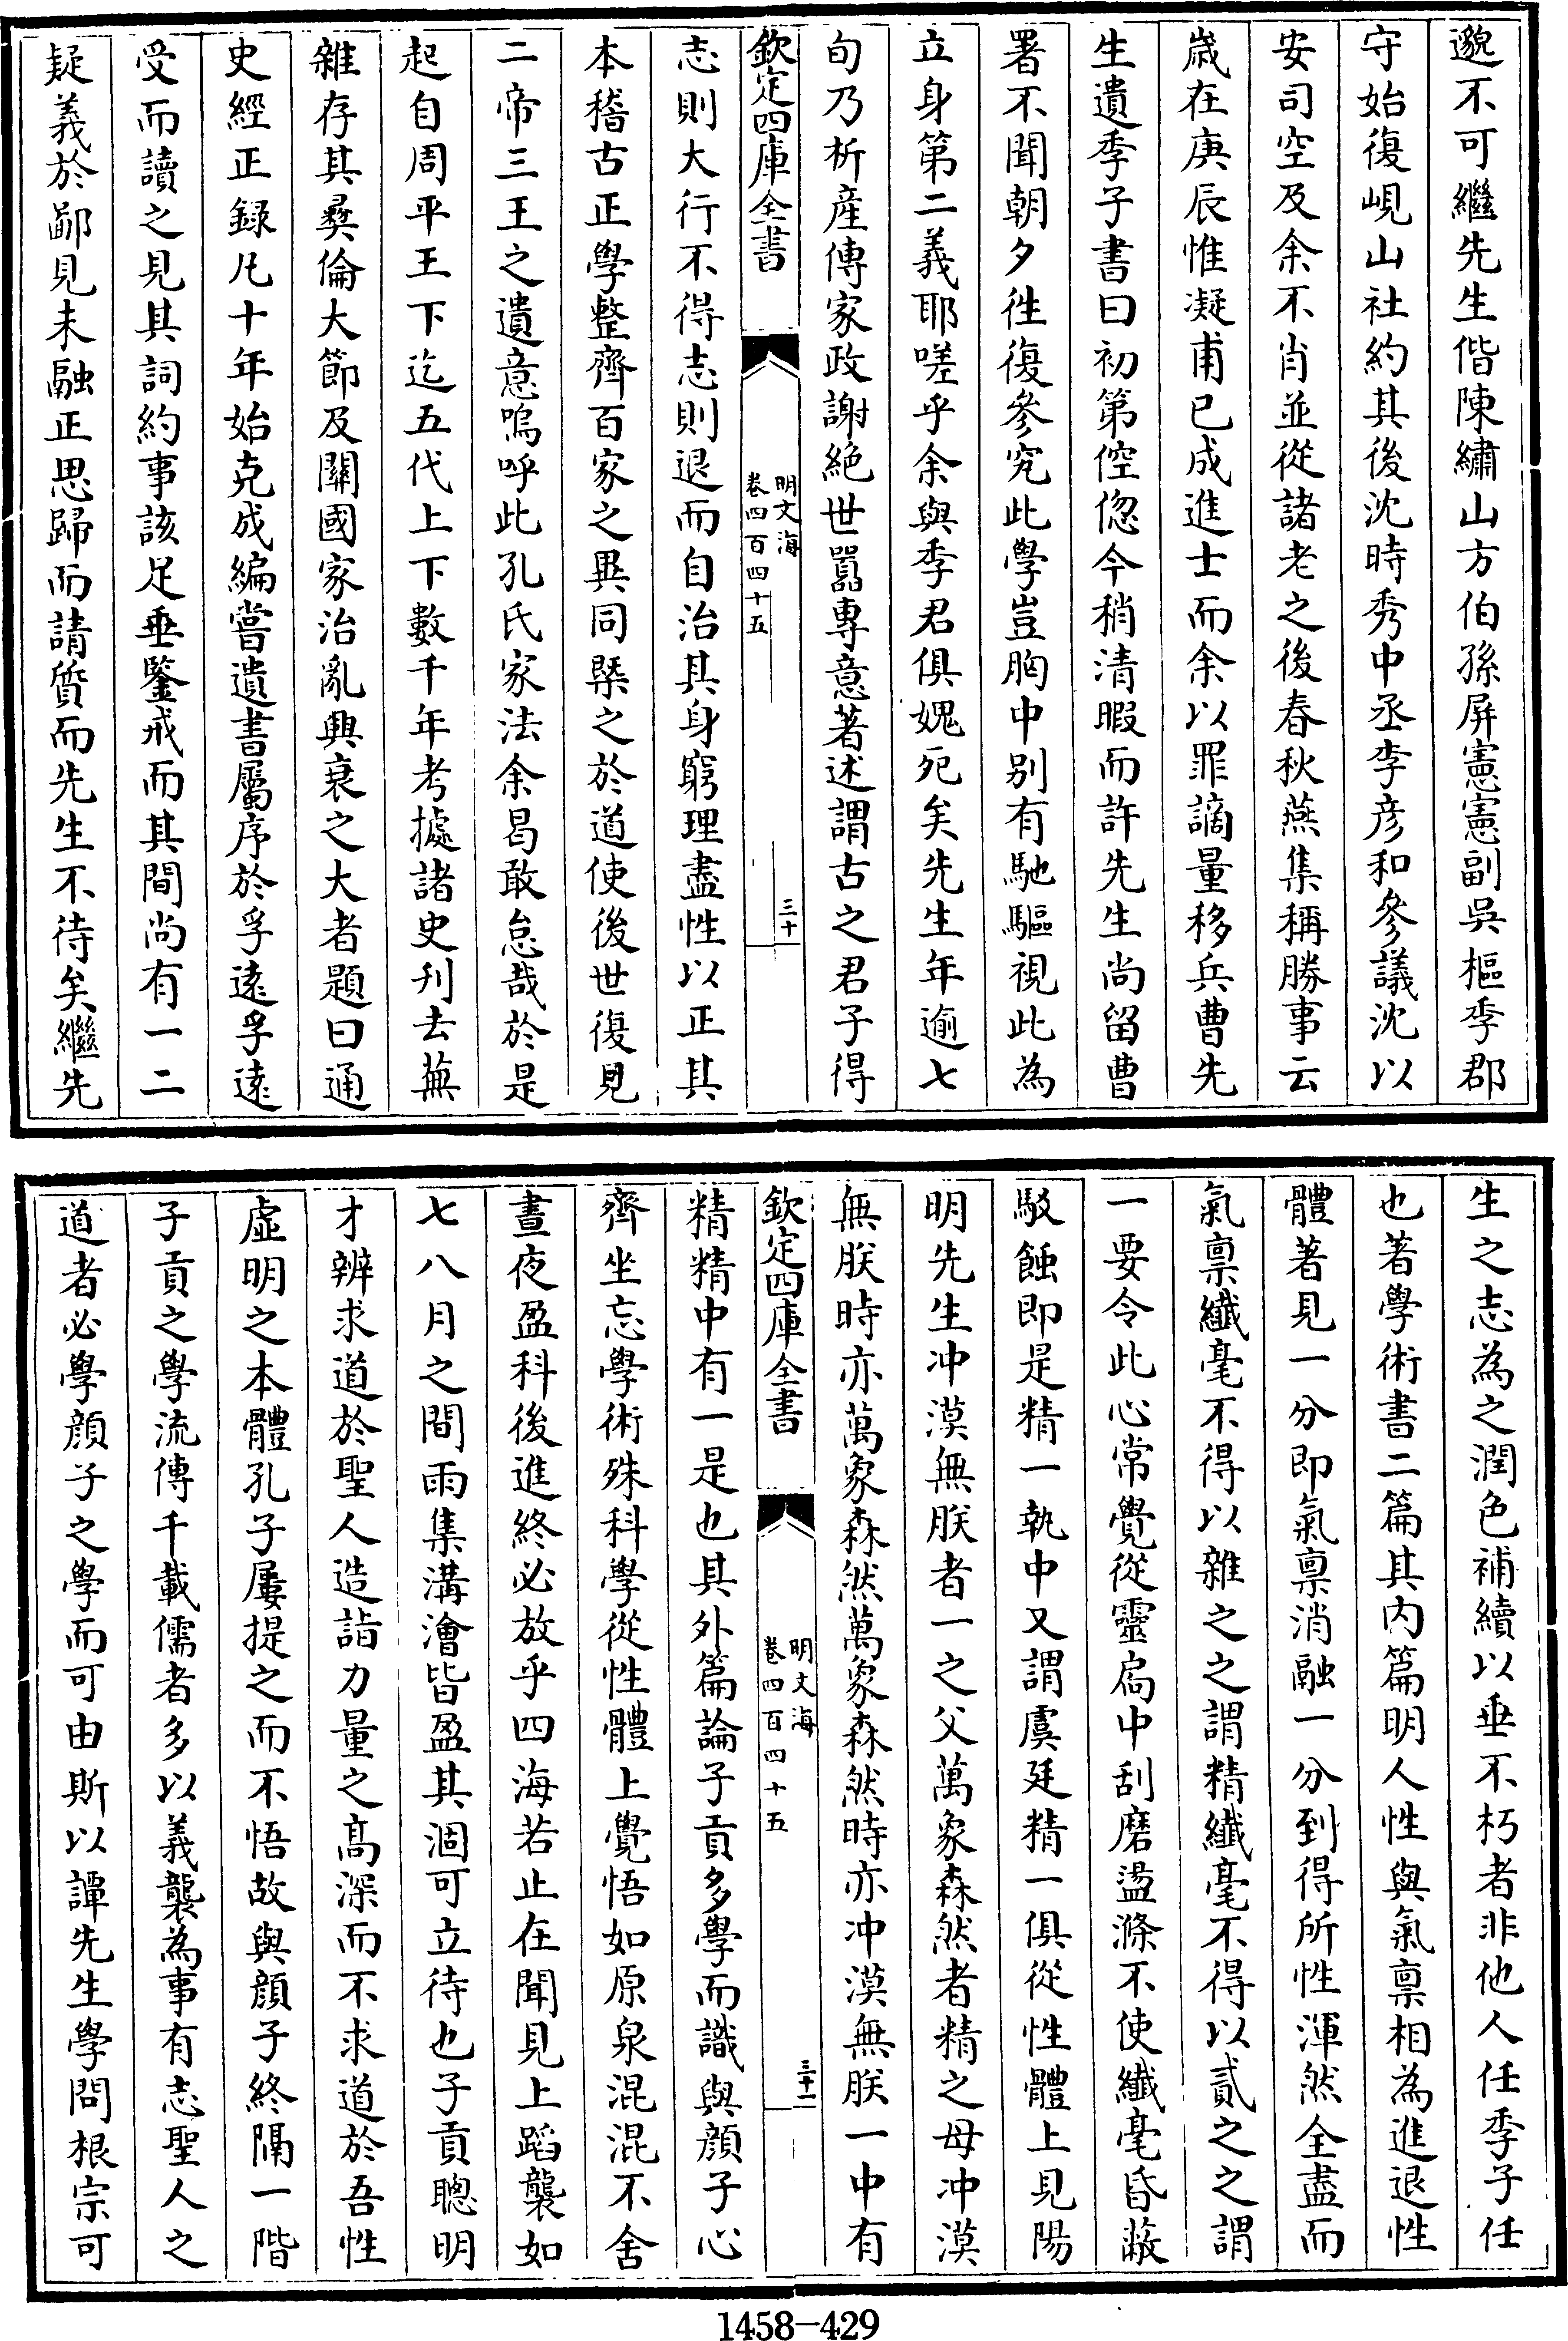 邈不可繼先生偕陳繡山方伯孫屏憲憲副吳樞季郡
守始復峴山社約其後沈時秀中丞李彥和參議沈以
安司空及余不肖並從諸老之後春秋燕集稱勝事云
歲在庚辰惟凝甫已成進士而余以罪謫量移兵曹先
生遺季子書曰初第倥偬今稍清暇而許先生尚留曹
署不聞朝夕徃復參究此學豈胸中别有馳驅視此為
立身第二義耶嗟乎余與季君俱媿死矣先生年逾七
旬乃析産傳家政謝絶世嚣專意著述謂古之君子得
欽定四庫全書
明文海
卷四百四十五
三十
志則大行不得志則退而自治其身窮理盡性以正其
本稽古正學整齊百家之異同槩之於道使後世復見
二帝三王之遺意嗚呼此孔氏家法余曷敢怠哉於是
起自周平王下迄五代上下數千年考據諸史刋去蕪
雜存其彞倫大節及關國家治亂興衰之大者題曰通
史經正録凡十年始克成編嘗遺書屬序於孚遠孚遠
受而讀之見其詞約事該足垂鑒戒而其間尚有一二
疑義於鄙見未融正思歸而請質而先生不待矣繼先
生之志為之潤色補續以垂不朽者非他人任季子任
也著學術書二篇其内篇明人性與氣禀相為進退性
體著見一分即氣禀消融一分到得所性渾然全盡而
氣禀纎毫不得以雜之之謂精纎毫不得以貳之之謂
一要令此心常覺從靈扃中刮磨盪滌不使纎毫昏蔽
駁蝕即是精一執中又謂虞廷精一俱從性體上見陽
明先生冲漠無朕者一之父萬象森然者精之母冲漠
無朕時亦萬象森然萬象森然時亦冲漠無朕一中有
欽定四庫全書
明文海
卷四百四十五
三十一
精精中有一是也其外篇論子貢多學而識與顔子心
齊坐忘學術殊科學從性體上覺悟如原泉混混不舍
晝夜盈科後進終必放乎四海若止在聞見上蹈襲如
七八月之間雨集溝澮皆盈其涸可立待也子貢聰明
才辨求道於聖人造詣力量之高深而不求道於吾性
虛明之本體孔子屢提之而不悟故與顔子終隔一階
子貢之學流傳千載儒者多以義襲為事有志聖人之
道者必學顔子之學而可由斯以譚先生學問根宗可
1458—429